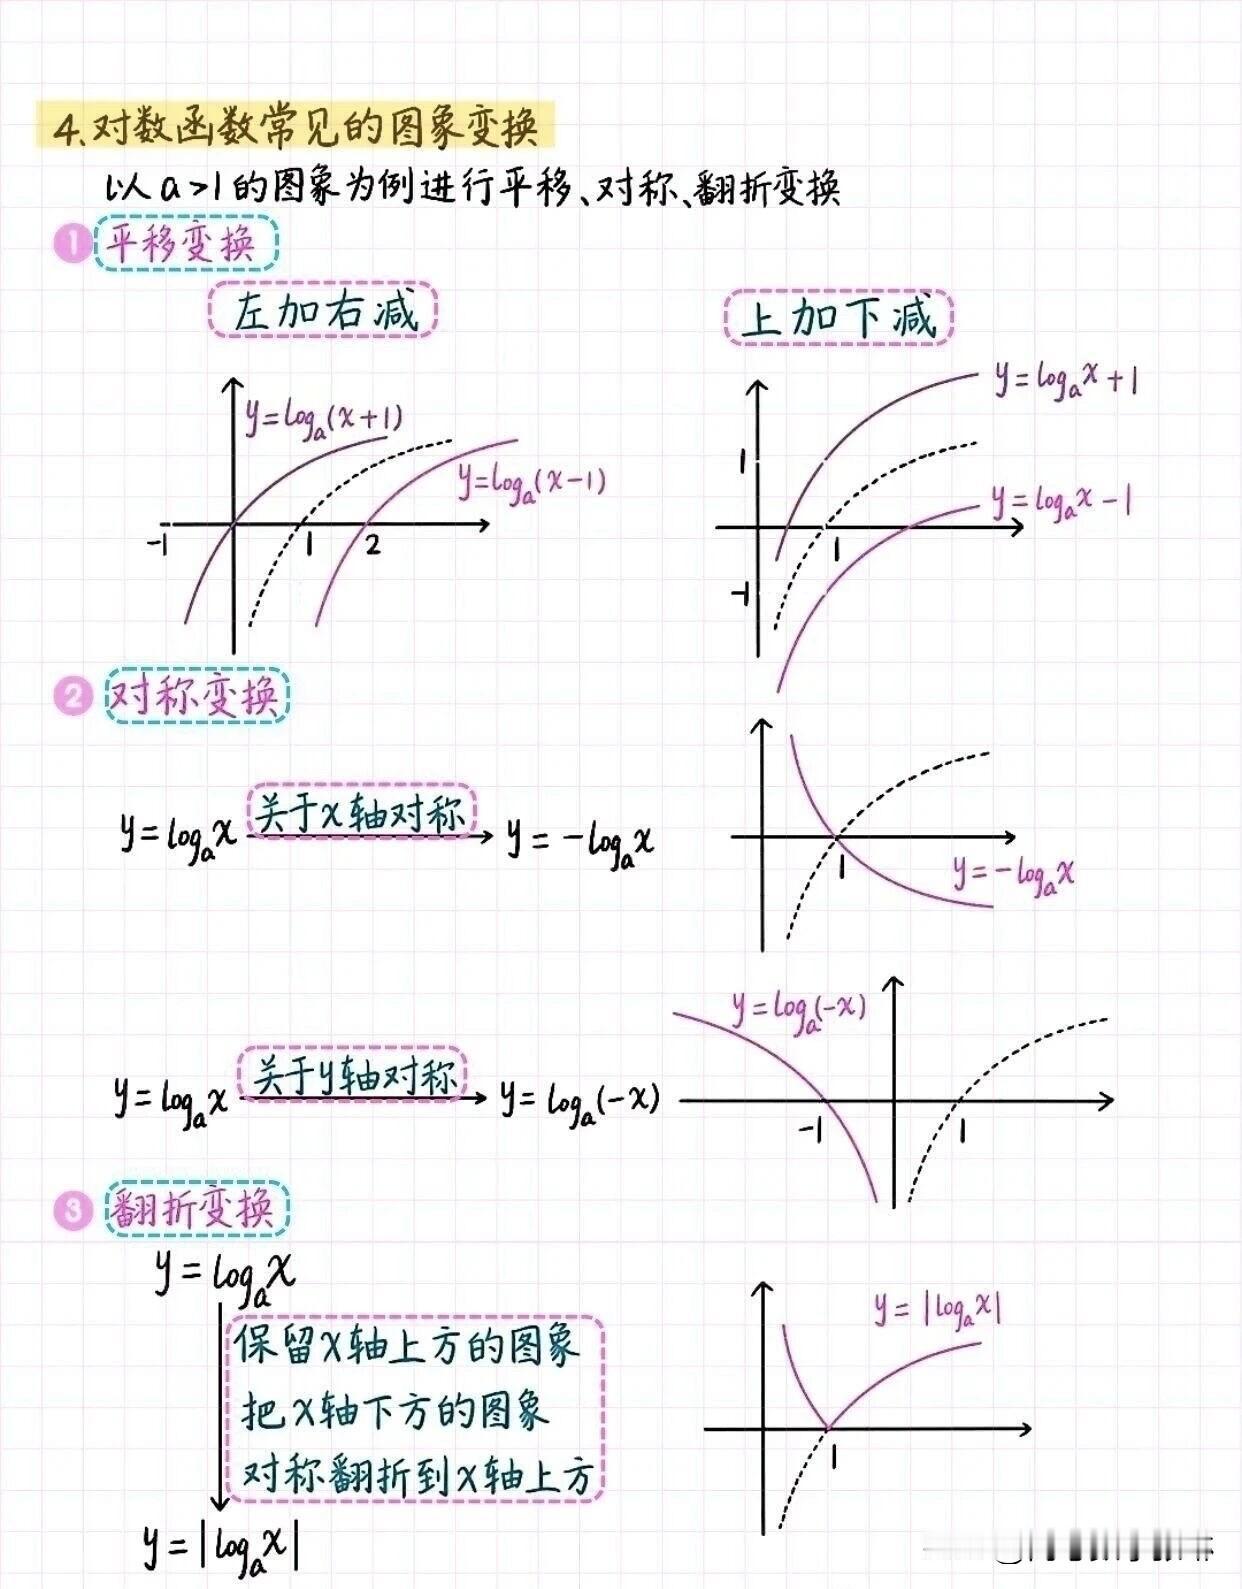 4.对数函数常见的图象变换
以a>1的图象为例进行平移、对称、翻折变换
1 平移变换
左加右减
上加下减
y=logₐ(x+1)
y=logₐ(x-1)
-1 1 2
y=logₐx+1
y=logₐx-1
1
1
-1
2 对称变换
y=logₐx 关于x轴对称 y=-logₐx
1
y=-logₐx
y=logₐx 关于y轴对称 y=logₐ(-x)
y=logₐ(-x)
-1 1
3 翻折变换
y=logₐx
保留x轴上方的图象
把x轴下方的图象
对称翻折到x轴上方
y=|logₐx|
y=|logₐx|
1